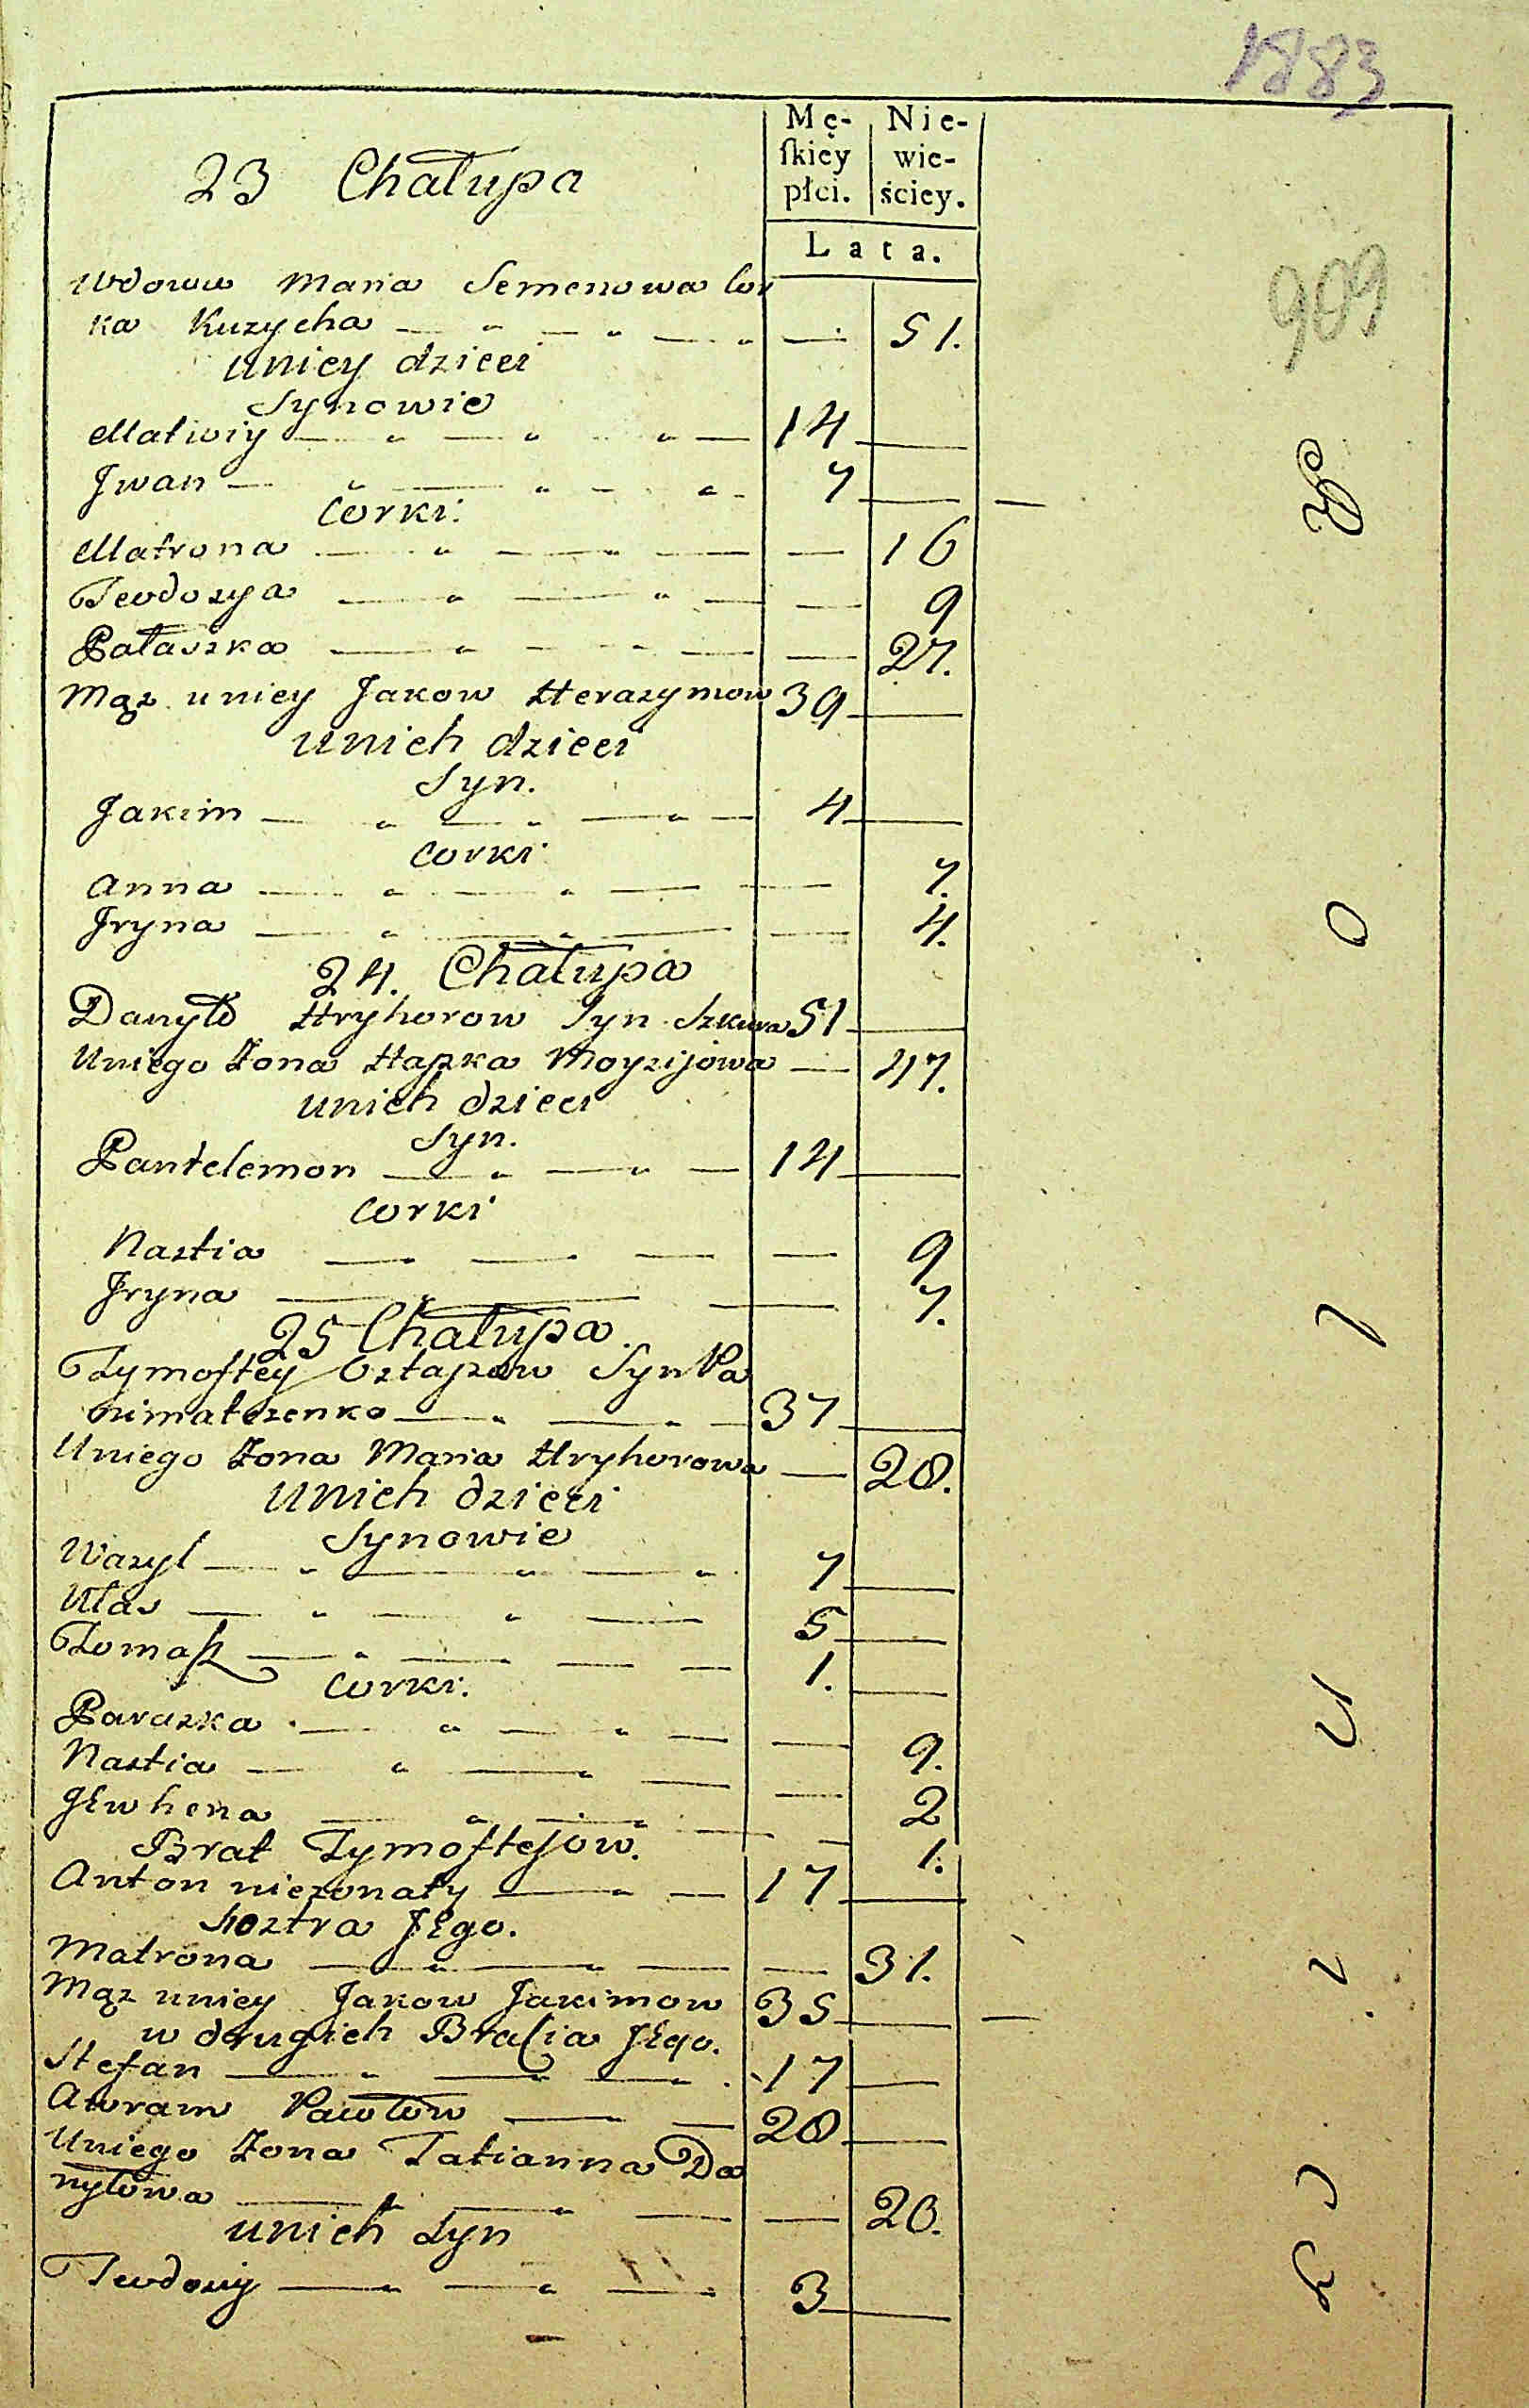 1883
Mę-
ſkiey
płci.
Nie-
wie-
ściey.
Lata.
909
23 Chałupa
Wdowa Maria Semenowa Cor
ka Kuzycha — 51.
uniey dzieci
Synowie
Matwiy 14 —
Jwan 7 —
Corki.
Matrona — 16
Teodozya — 9
Pałaszka — 27.
Mąz uniey Jakow Herazymow 39 —
unich dzieci
Syn.
Jakim 4 —
Corki
Anna — 7.
Jryna — 4.
24. Chałupa
Danyło Hryhorow Syn Szkura 51 —
Uniego Zona Hapka Moyzijowa — 47.
unich dzieci
Syn.
Pantelemon 14 —
Corki
Nastia — 9
Jryna — 7.
25 Chałupa.
Tymoftey Ostapow Syn Pa
nimatczenko 37 —
Uniego Zona Maria Hryhorowa — 28.
unich dzieci
Synowie
Wazyl 7 —
Ułas 5 —
Tomaſz 1. —
Corki.
Paraska — 9.
Nastia — 2
JEwhena — 1.
Brat Tymoftejow.
Anton niezonaty 17 —
Sostra JEgo.
Matrona — 31.
Mąz uniey Jakow Jakimow 35 —
w drugich Bracia JEgo.
Stefan 17 —
Awram Pawłow 28 —
Uniego Zona Tatianna Da
nyłowa — 20.
unich Syn
Teodoziy 3 —